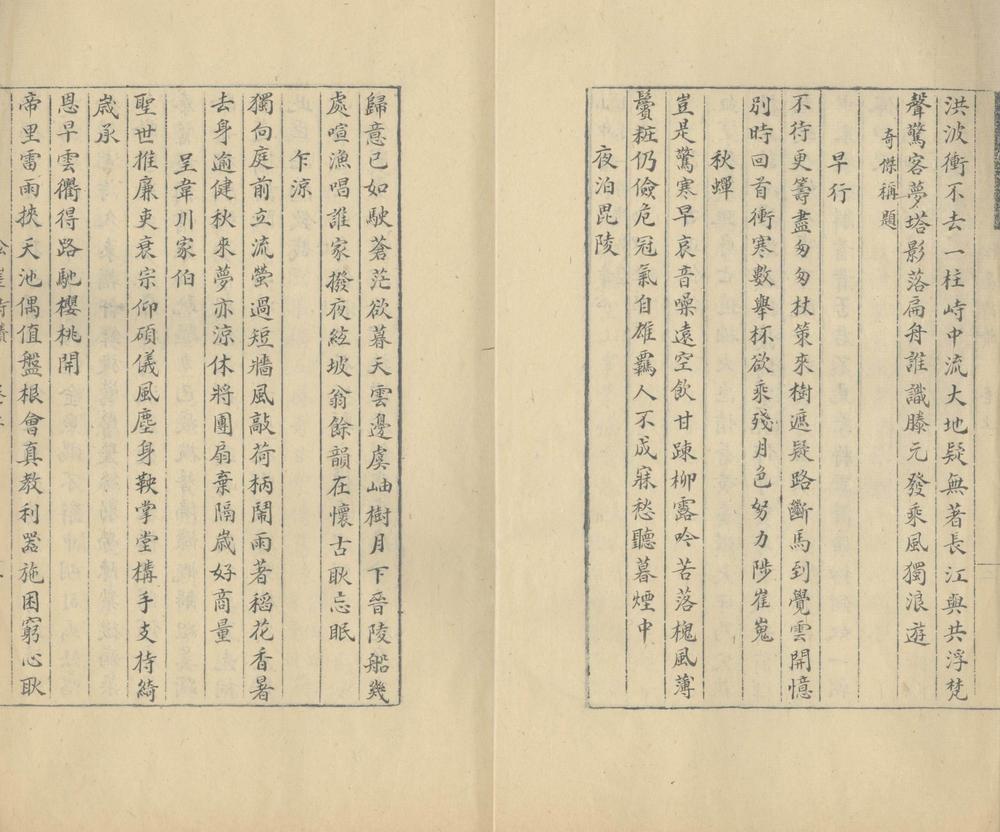 洪波衝不去一柱峙中流大地疑無著長江與共浮梵
聲驚客夢塔影落扁舟誰識滕元發乘風獨浪遊
奇傑稱題
早行
不待更籌盡匆匆扙策來樹遮疑路斷馬到覺雲開憶
別時回首衝寒數舉杯欲乘殘月色努力陟崔嵬
秋蟬
豈是驚寒早哀音噪遠空飲甘疎柳露吟苦落槐風薄
鬢粧仍儉危冠氣自雄羈人不成寐愁聽暮煙中
夜泊毘陵
歸意已如駛蒼茫欲暮天雲邊虞岫樹月下晉陵船幾
處喧漁唱誰家撥夜絃坡翁餘韻在懷古耿忘眠
乍涼
獨向庭前立流螢過短牆風敲荷柄鬧雨著稻花香暑
去身逾健秋來夢亦涼休將團扇棄隔歲好商量
呈韋川家伯
聖世推廉吏衰宗仰碩儀風塵身鞅掌堂構手支持綺
歲承
恩早雲衢得路馳櫻桃開
帝里雷雨挾天池偶值盤根會真教利器施困窮心耿